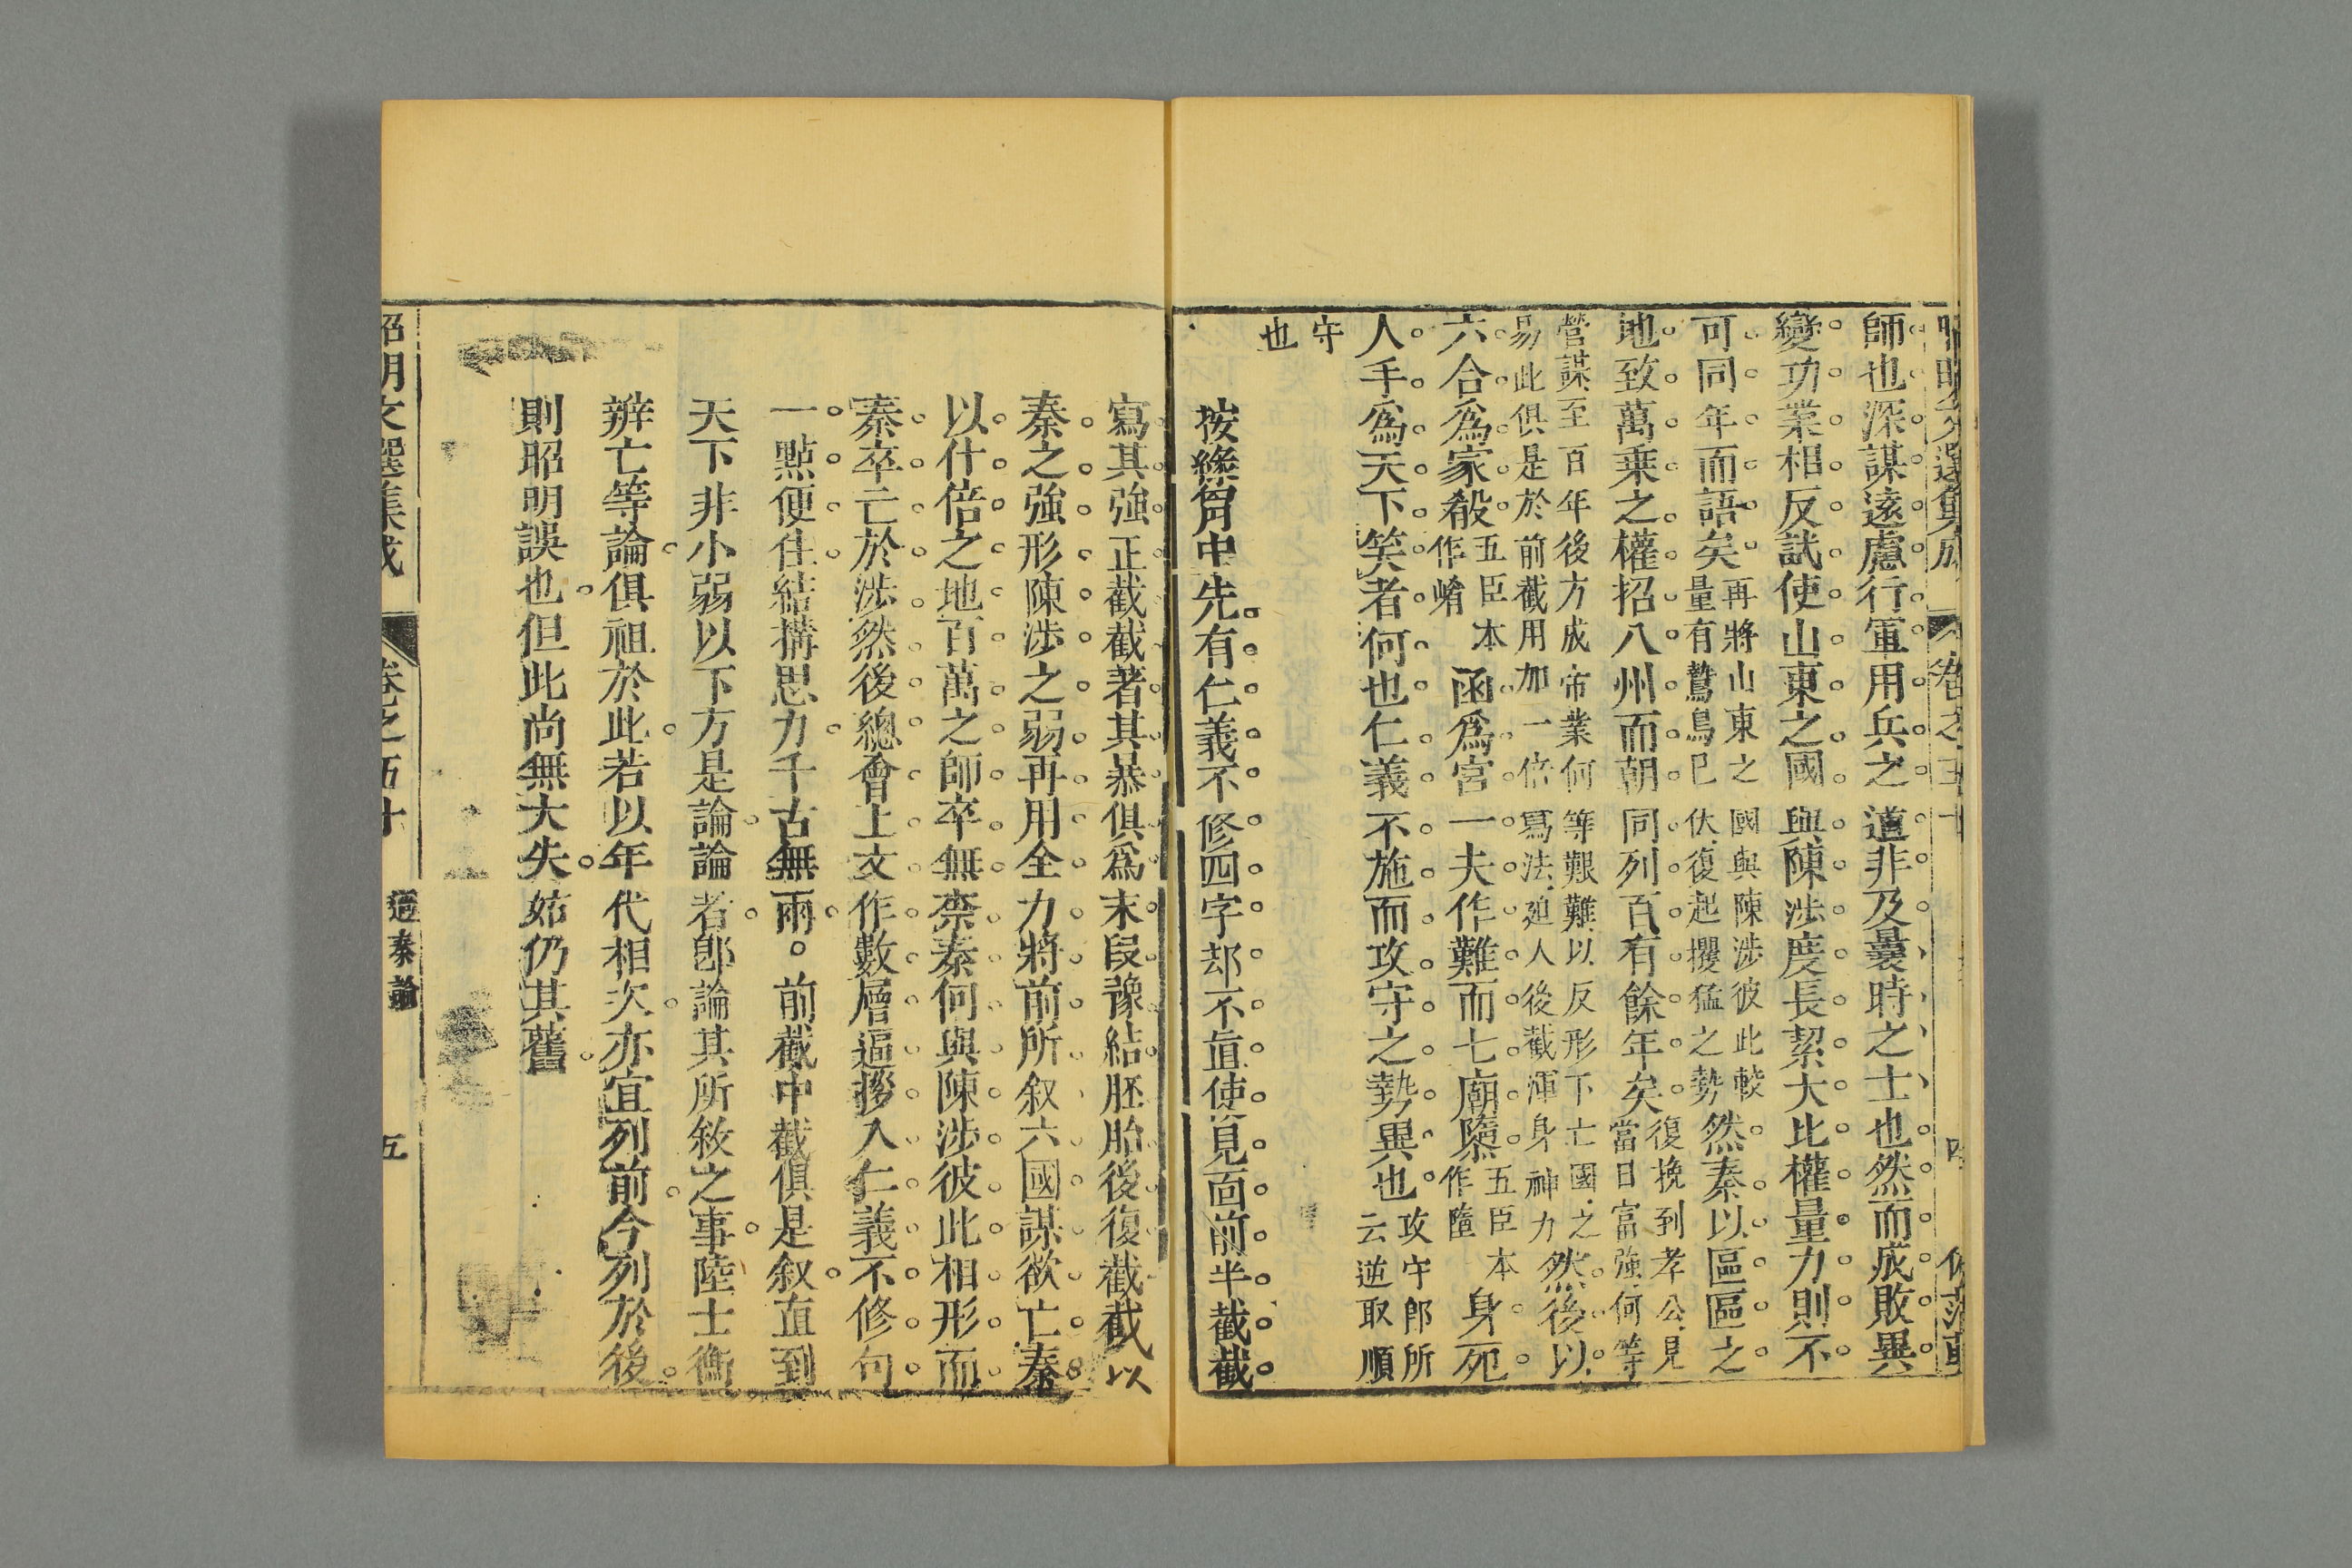 師也深謀遠慮行軍用兵之道非及曩時之士也然而成敗異
變功業相反試使山東之國與陳涉度長絜大比權量力則不
可同年而語矣再將山東之國與陳涉彼此較量有鷙鳥已伏復起攫猛之勢然秦以區區之
地致萬乗之權招八州而朝同列百有餘年矣復挽到孝公見當日富強何等
營謀至百年後方成帝業何等艱難以反形下亡國之易此俱是於前截用加一倍寫法廹人後截渾身神力然後以
六合爲家殽五臣本作崤函爲宮一夫作難而七廟隳五臣本作隨身死
人手爲天下笑者何也仁義不施而攻守之勢異也攻守卽所云逆取順
守也
按絛䏍中先有仁義不修四字却不直使見面前半截截
寫其強正截截著其暴俱爲末段豫結胚胎後復截截以
秦之強形陳涉之弱再用全力將前所叙六國謀欲亡秦
以什倍之地百萬之師卒無柰秦何與陳涉彼此相形而
秦卒亡於涉然後總會上文作數層逼拶入仁義不修句
一點便住結搆思力千古無兩。前截中截俱是叙直到
天下非小弱以下方是論論者卽論其所敘之事陸士衡
辨亡等論俱祖於此若以年代相次亦宜列前今列於後
則昭明誤也但此尚無大失姑仍其舊
昭明文選集成 卷之五十 過秦論 五